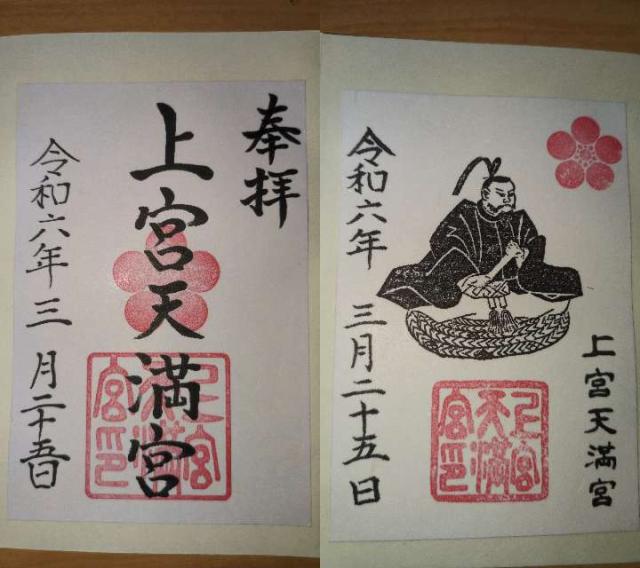 奉拝
上宮天満宮
令和六年三月二十五日
上宮天満宮印
上宮天満宮
令和六年 三月二十五日
上宮天満宮印